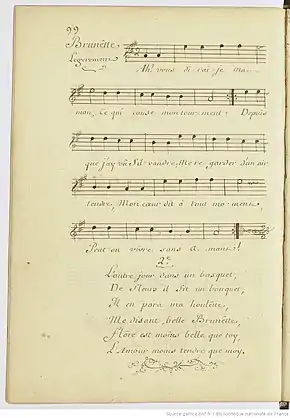 22
Brunette
Legerement
Ah! vous di rai-je Ma-
man, Ce qui cause mon tour-ment? Depuis
que j'ay vû Sil-vandre, Me re-garder d'un air
tendre, Mon cœur dit à tout mo-ment,
Peut on vivre sans A-mant!
2e.
L'autre jour dans un bosquet,
De fleurs il fit un bouquet,
Il en para ma houlette,
Me disant, belle Brunette,
Flore est moins belle que toy,
L'Amour moins tendre que moy.
Source gallica.bnf.fr / Bibliothèque nationale de France